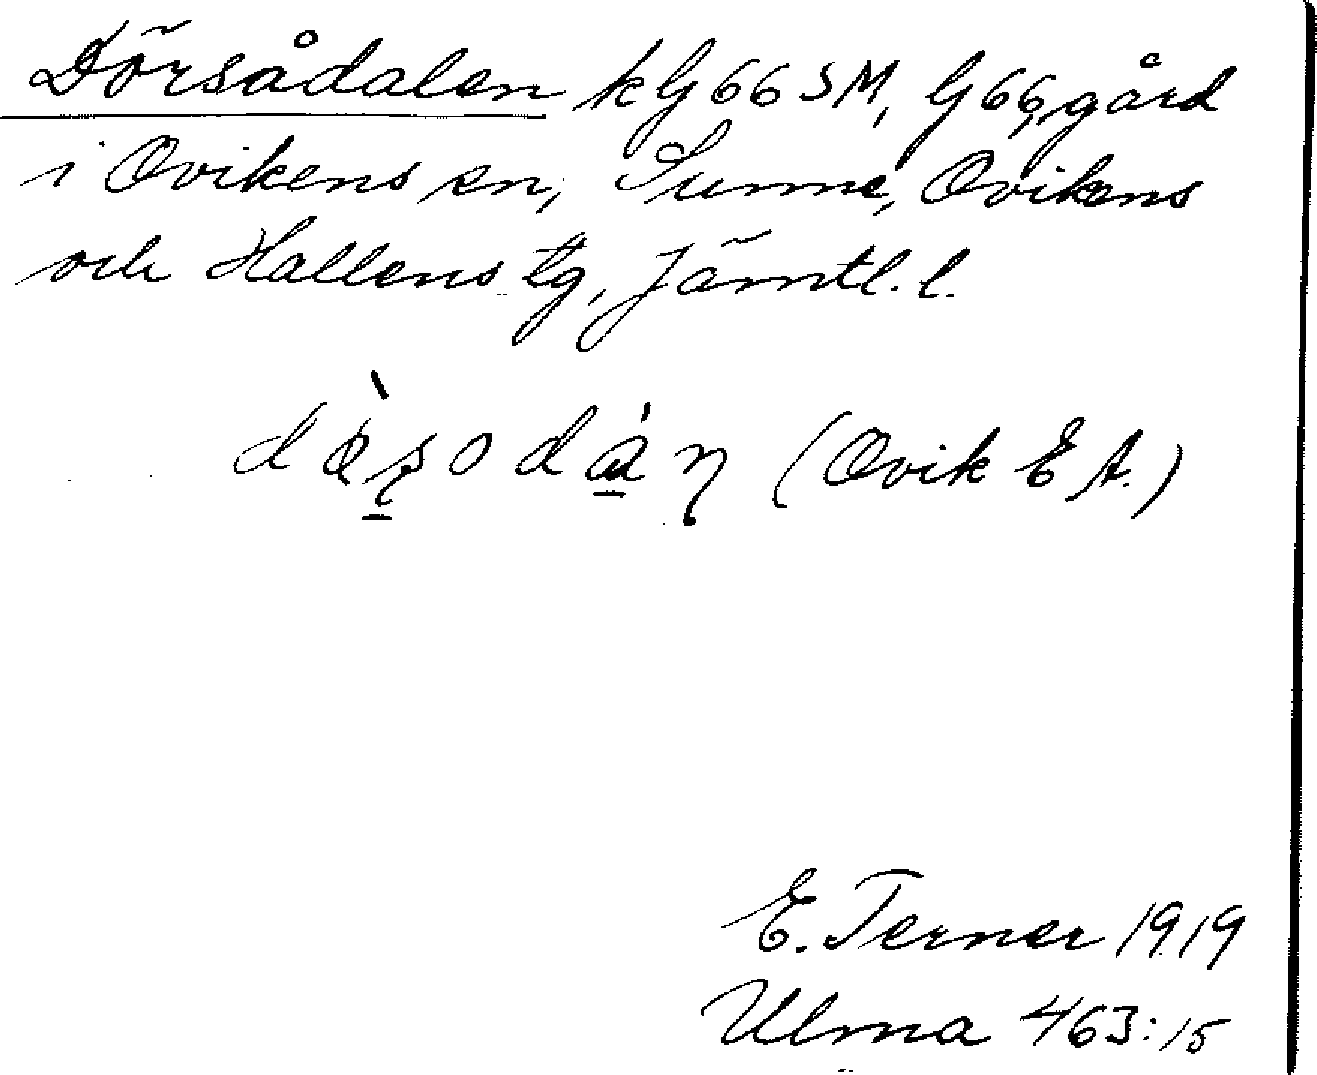 Dörsådalen kG66 SM, G66, gård
i Ovikens sn, Sunne, Ovikens
och Hallens tg, Jämtl. l.
(Ovik E A.)
E. Terner 1919
Ulma 463:15